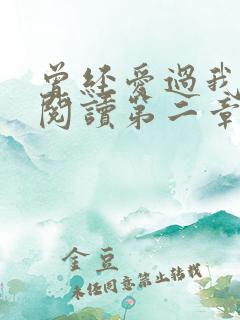 曾经爱過我
閱讀第二章
金豆
未经同意禁止转载